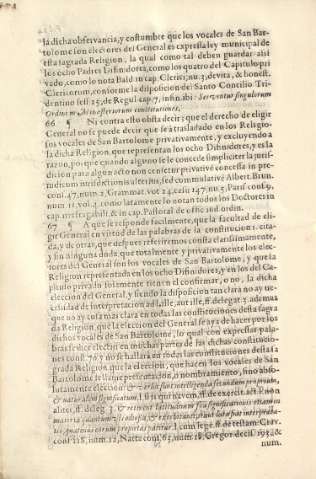 la dicha observancia, y costumbre que los vocales de San Bar-
tolome son electores del General es expressa ley municipal de
esta sagrada Religion, la qual como tal deben guardar assi
los ocho Padres Difinidores, como los quatro del Capitulo pri-
vado, como lo nota Bald in cap. Clerici, nu. 3. de vita, & honest.
Clericorum, conforme la disposicion de Santo Concilio Tri-
dentino sess. 25. de Regul. cap. 7, infin. ibi: Serventur singulorum
66 ¶ Ni contra esto obsta decir; que el derecho de eligir
General no se puede decir que se a trasladado en los Religio-
sos vocales de San Bartolome privativamente, y excluyendo a
la dicha Religion, que representan los ocho Difinidores, y es la
razon, porque quando alguno se le concede simpliciter la jurisdi-
cion para algun acto non censetur privative concessa in pre-
iudicium iurisdictionis alterius, sed cummulative Albert. Brun.
conf. 47. num. 2. Grammat. vot. 24. Paris. conf. 9.
num. 11. vol. 4. como latamente lo notan todos los Doctores in
cap. & in cap. Pastoral. de offic. ind. ordin.
67 ¶ A que se responde facilmente, que la facultad de eli-
gir General en virtud de las palabras de la constitucion 1. cita-
da, y de otras, que despues referiremos consta clarissimamente,
y sin ninguna duda, que totalmente y privativamente los elec-
tores del General son los vocales de San Bartolome, y que la
Religion representada en los ocho Difinidores, y en los del Ca-
pitulo privado solamente tienen el confirmar, o no, la dicha
eleccion del General, y siendo la disposicion tan clara no ay ne-
cessidad de interpretacion ad l. ille, aut ille, ff. de legat. 3. ademas
que no ay cosa mas clara en todas las constituciones desta sagra-
da Religion, que la eleccion del General se aya de hacer por los
dichos vocales de San Bartolome, lo qual con expressas pala-
bras se dice electio en muchas partes de las dichas constitucio-
nes conf. 70. y no se hallara en todas las constituciones desta sa-
grada Religion que la eleccion, que hacen los vocales de San
Bartolome se llame presentacion, o nombramiento, sino abso-
lutamente eleccion: & verba sunt intelligenda secundum proprium,
& naturalem significatum. l. 1. si is qui navem, ff. de exercit. act. l. non
aliter, ff. de leg. 3. & retinent latitudinem suae significationis etiam in
materia
tio quando verborum proprietas patitur. l. cum lege, ff. de testam. Crav.
conf. 118. num. 12. Natta conf. 63. num. 18. Gregor. decis. 193. &
num.